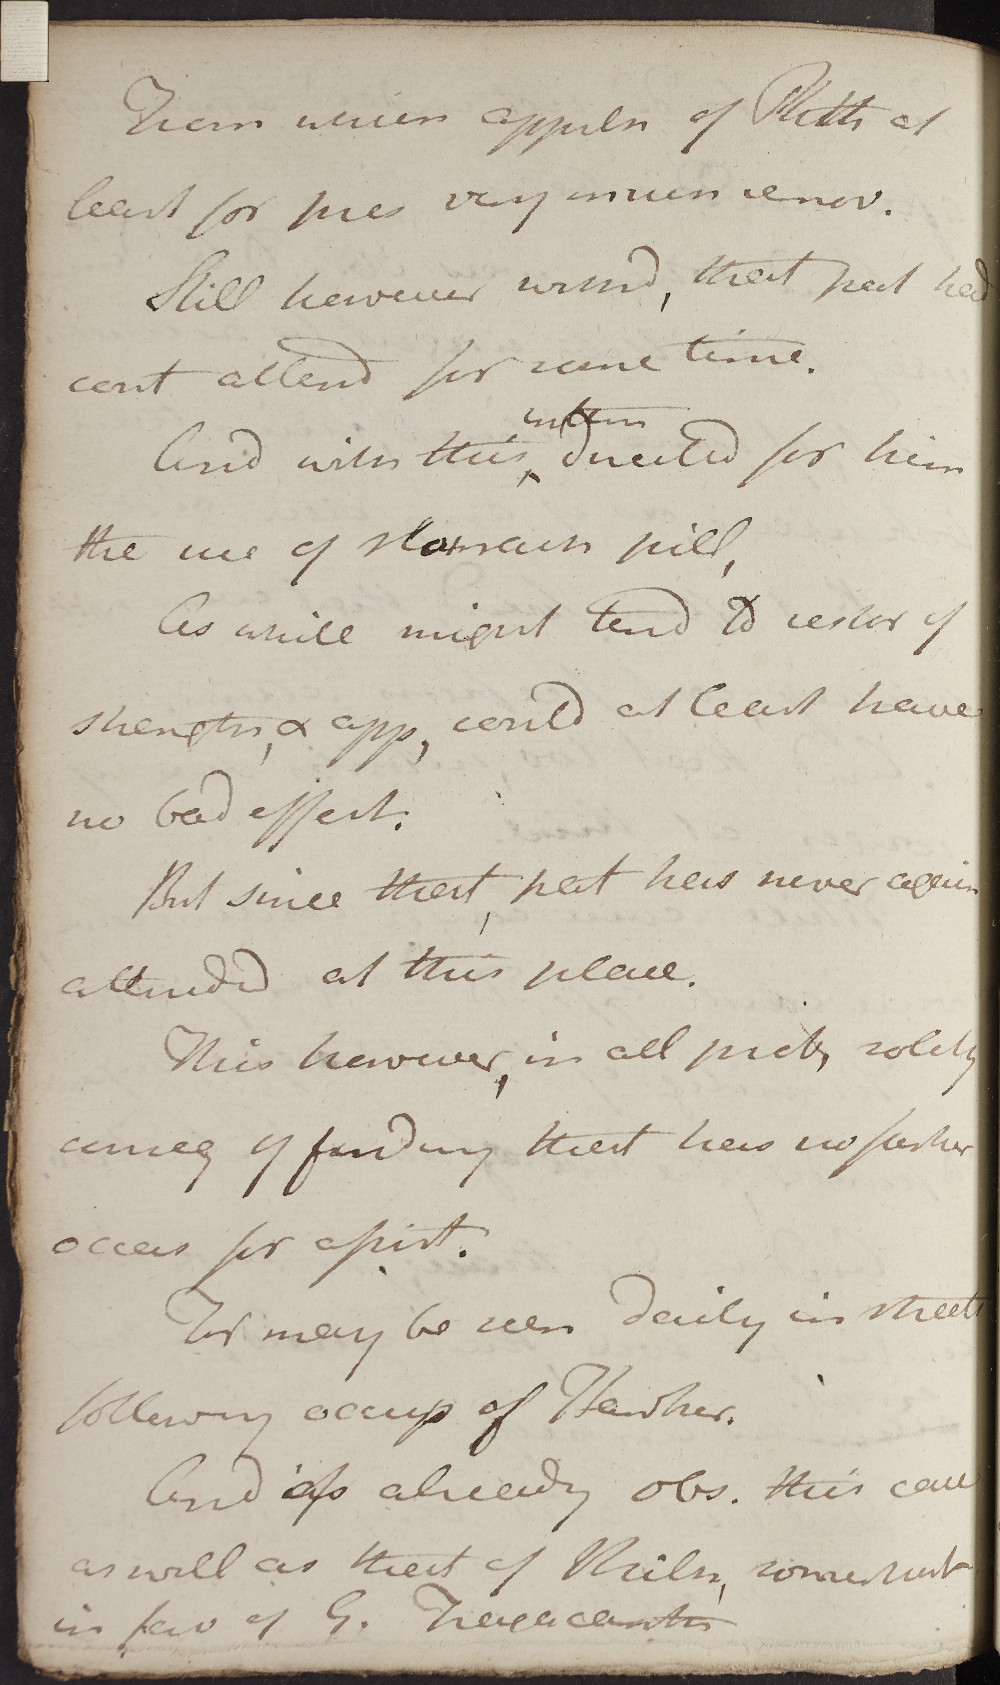 From which appehn of Phth at
least for pres very much remov.
Still however wishd, that pat had
cont attend for some time.
intern
And with this, directed for him
the use of stomach pill,
As while might tend to restor of
strength, & app, could at least have
no bad effect.
But since that, pat has never again
attended at this place.
This however, in all prob, solely
conseq of finding that has no farther
occas for assist.
For may be seen daily in streets
following occup of Hawker.
And as already obs. this case
as well as that of somewhat
in fav of G. Tragacanth